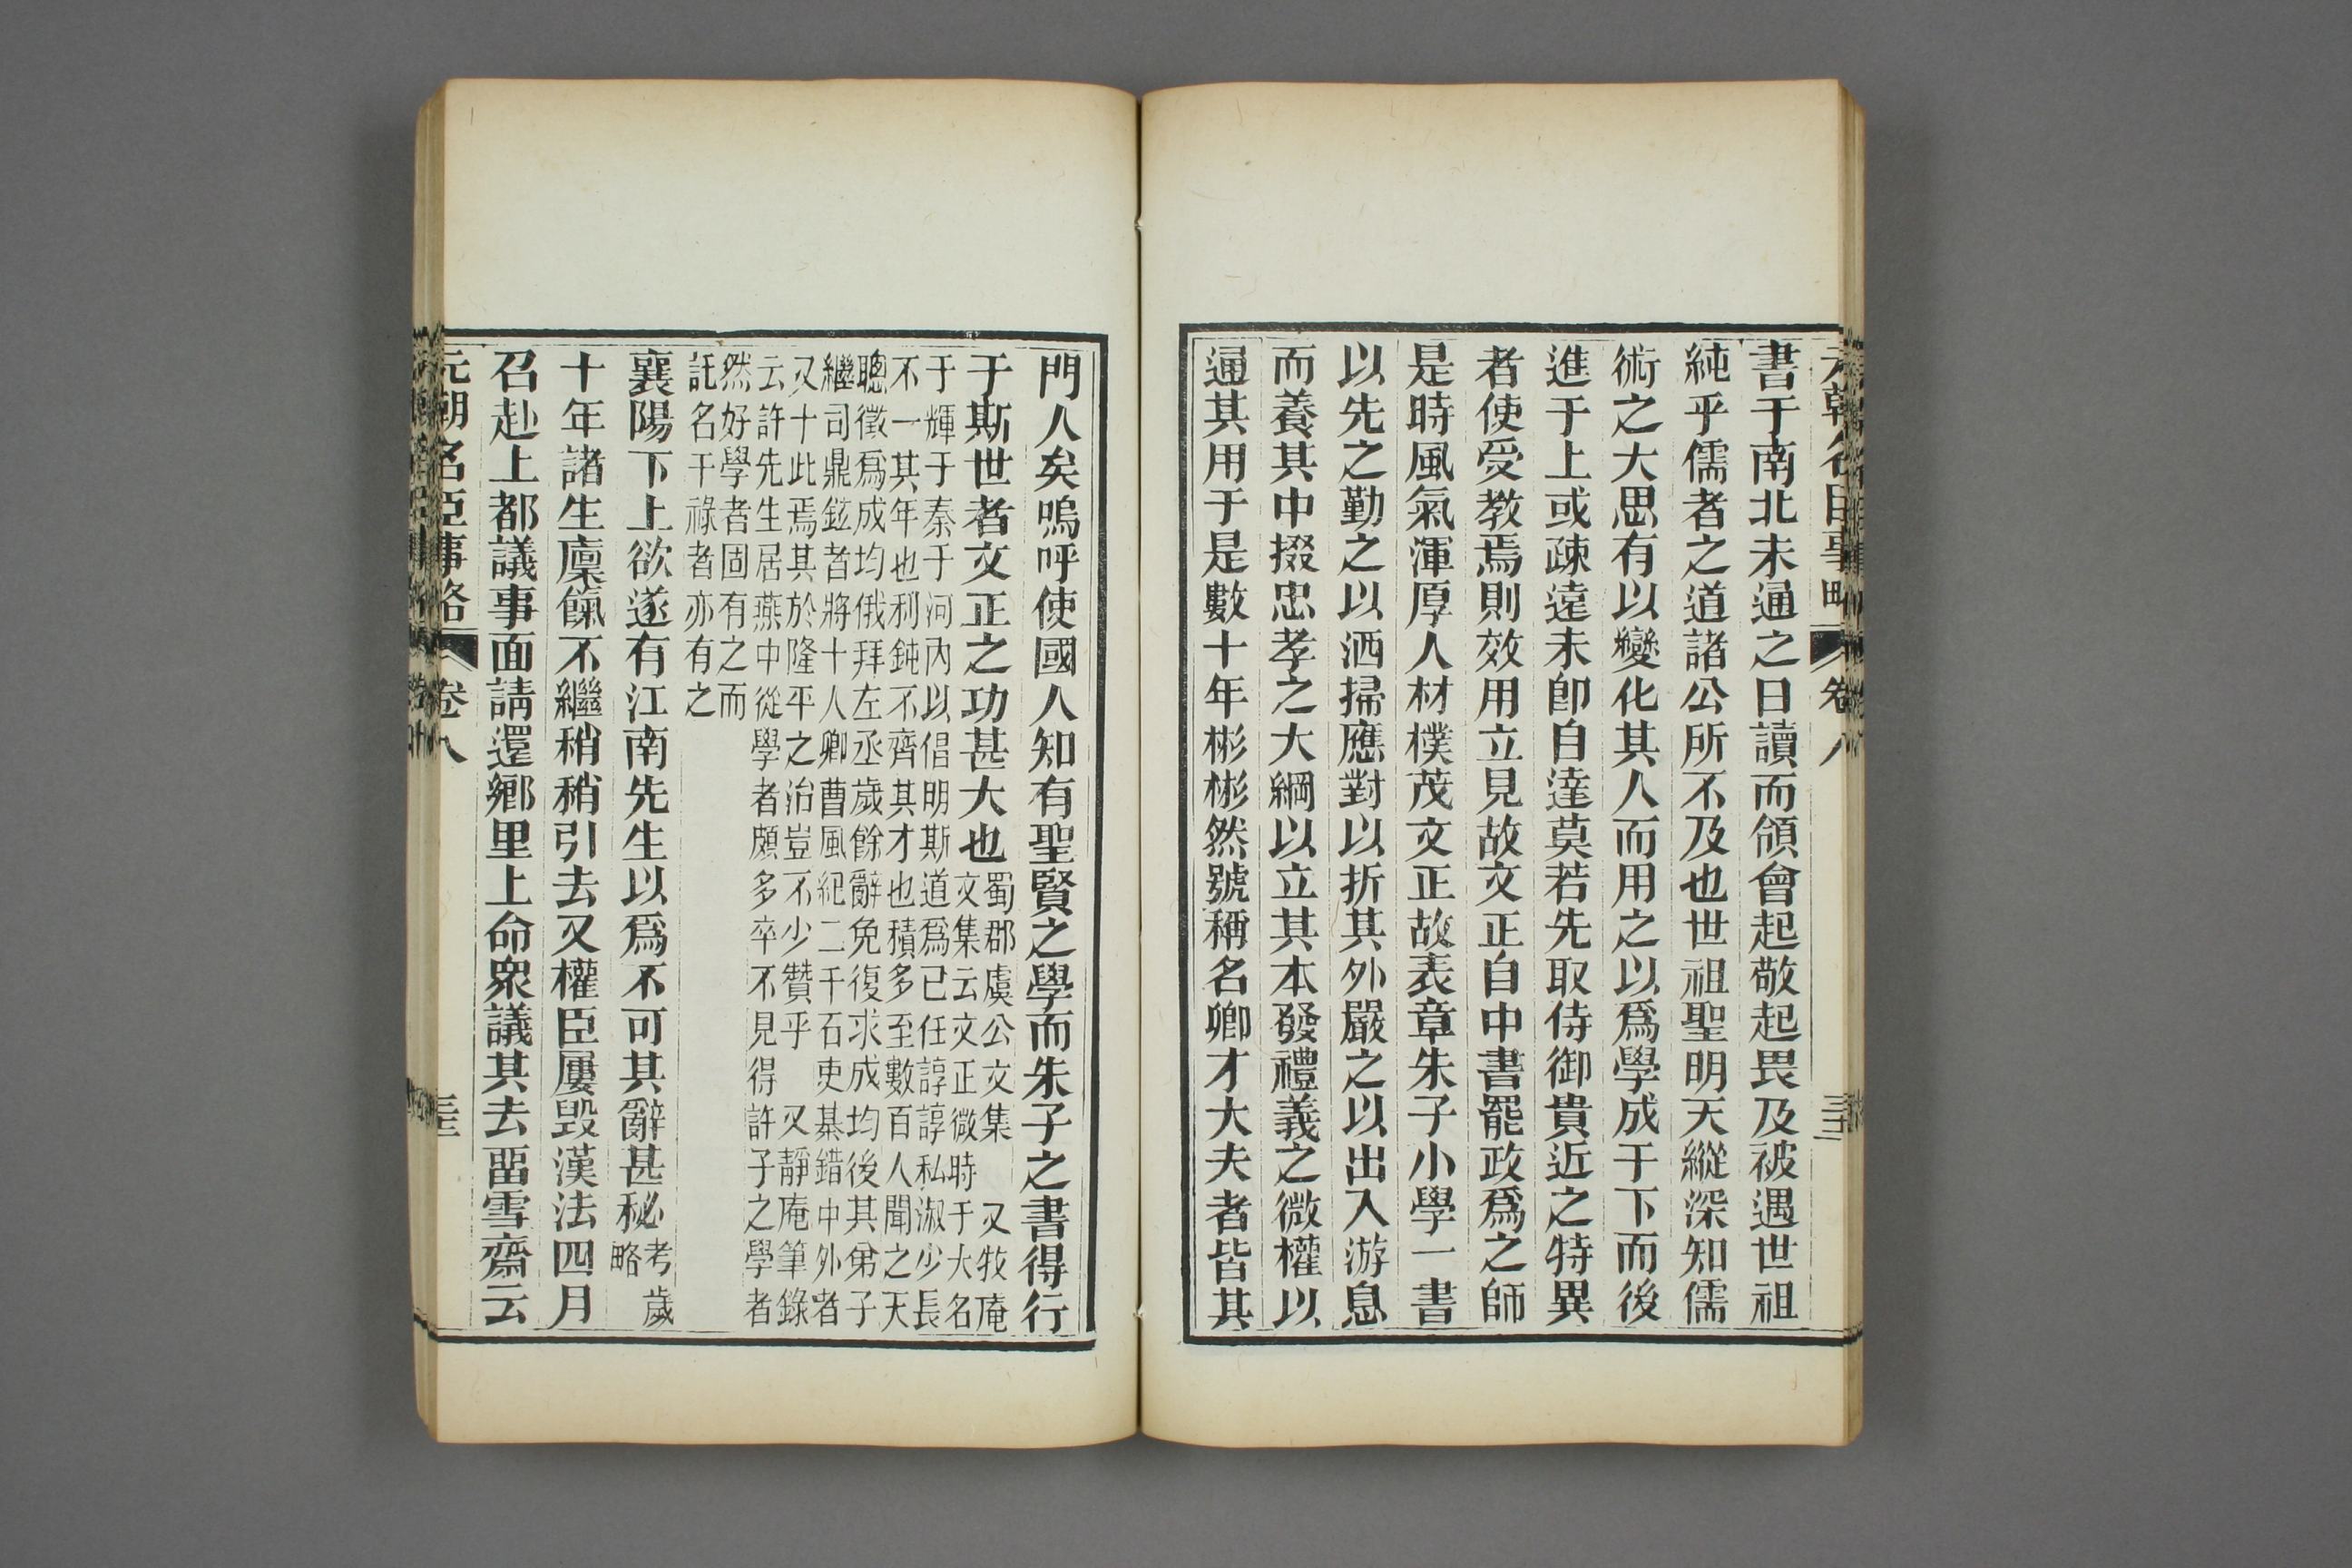 元朝名臣事略 卷八
書于南北未通之日讀而領會起敬起畏及被遇世祖
純乎儒者之道諸公所不及也世祖聖明天縱深知儒
術之大思有以變化其人而用之以爲學成于下而後
進于上或疎遠未卽自達莫若先取侍御貴近之特異
者使受教焉則效用立見故文正自中書罷政爲之師
是時風氣渾厚人材樸茂文正故表章朱子小學一書
以先之勤之以洒掃應對以折其外嚴之以出入游息
而養其中掇忠孝之大綱以立其本發禮義之微權以
通其用于是數十年彬彬然號稱名卿才大夫者皆其
門人矣嗚呼使國人知有聖賢之學而朱子之書得行
于斯世者文正之功甚大也
蜀郡虞公文集 又牧庵
文集云文正微時于大名
于輝于秦于河內以倡明斯道爲已任諄諄私淑少長
不一其年也利鈍不齊其才也積多至數百人聞之天
聰徵爲成均俄拜左丞歲餘辭免復求成均後其弟子
繼司鼎鉉者將十人卿曹風紀二千石吏棊錯中外者
又十此焉其於隆平之治豈不少贊乎 又靜庵筆錄
云許先生居燕中從學者頗多卒不見得許子之學者
然好學者固有之而
託名干祿者亦有之
襄陽下上欲遂有江南先生以爲不可其辭甚秘
考歲
略
十年諸生廩餼不繼稍稍引去又權臣屢毁漢法四月
召赴上都議事面請還鄉里上命衆議其去畱雪齋云
元朝名臣事略 卷八